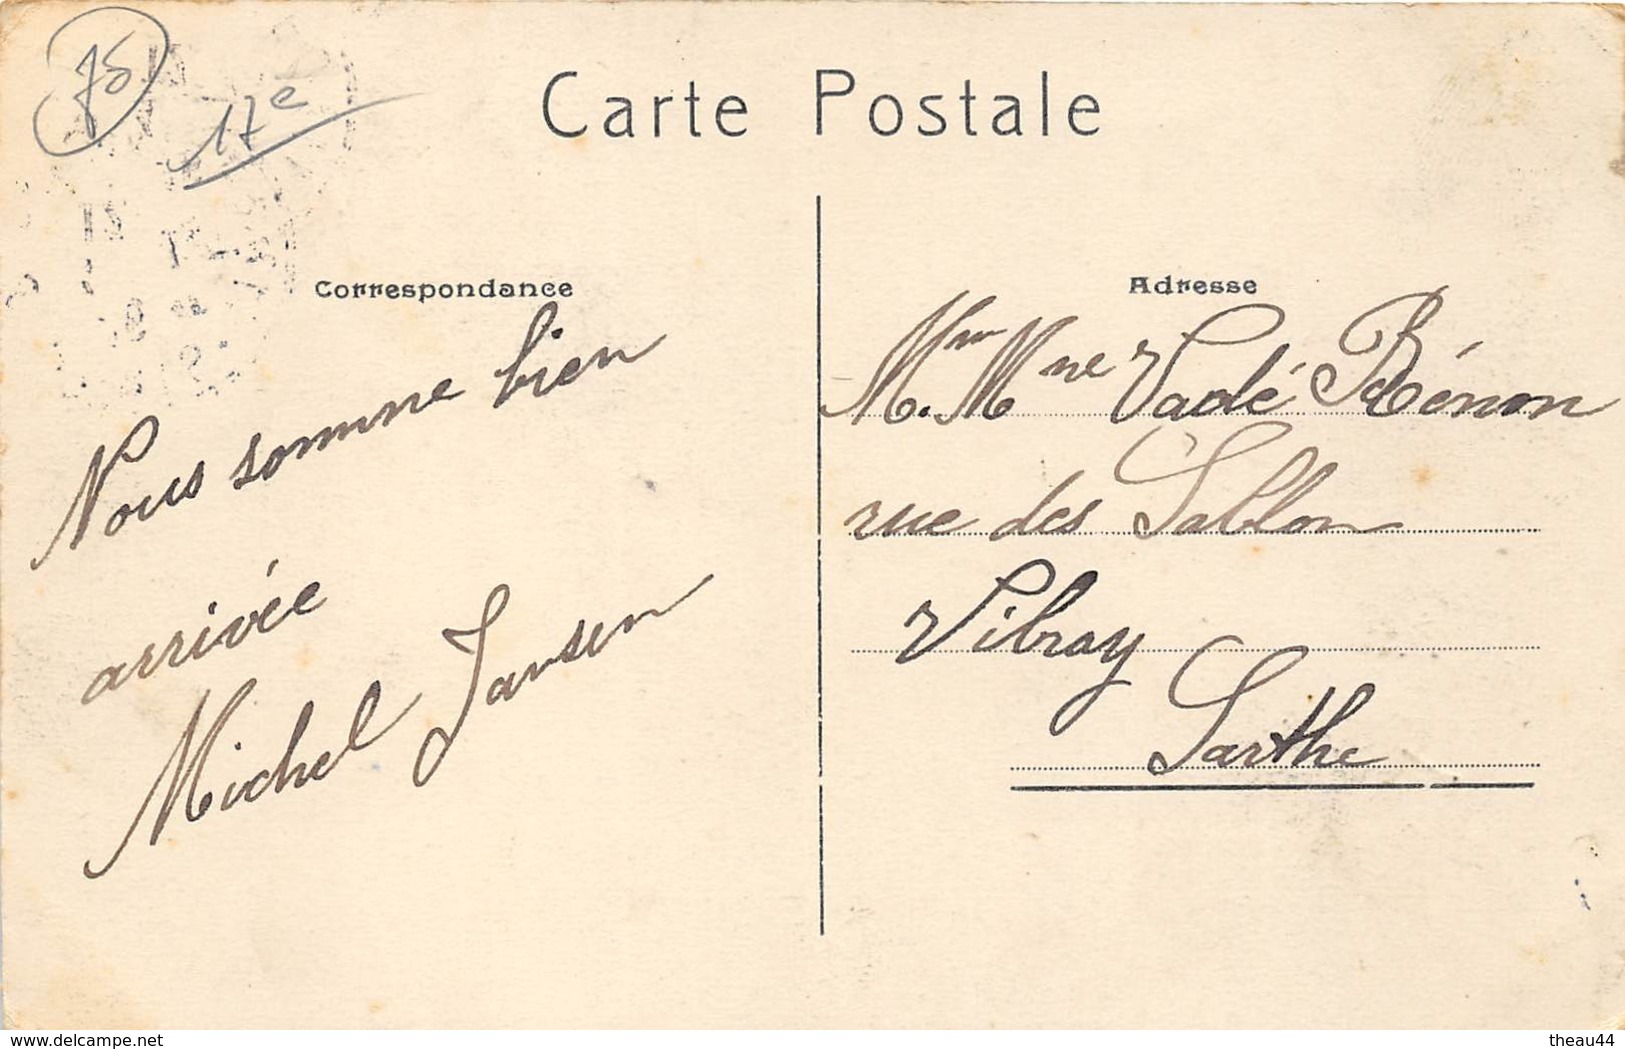 75
17e
Carte Postale
Correspondance
Nous somme bien
arrivée
Michel Jansen
Adresse
Mme Vadé Rénon
rue des Sablon
Vibray
Sarthe
www.delcampe.net
theau44